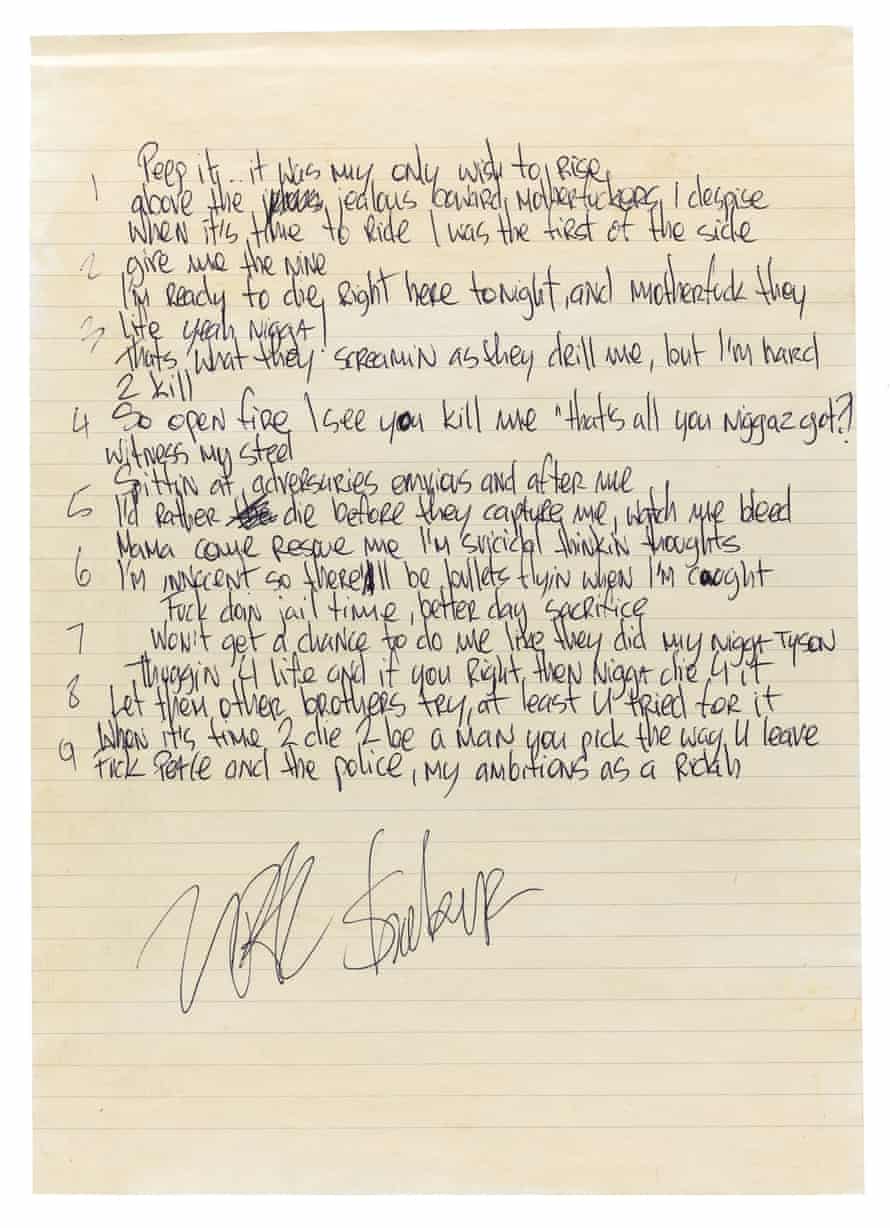 1 Peep it.. it was my only wish to rise
above the jealous coward, motherfuckers I despise
when it's time to ride I was the first of the side
2 give me the nine
I'm ready to die right here tonight, and motherfuck they
3 life yeah nigga!
thats what they screamin as they drill me, but I'm hard
2 kill
4 So open fire I see you kill me "that's all you niggaz got?
witness my steel
Spittin at adversaries envious and after me
5 I'd rather die before they capture me, watch me bleed
Mama come rescue me I'm suicidal thinkin thoughts
6 I'm innocent so there'll be bullets flyin when I'm caught
Fuck doin jail time, better day sacrifice
7 Won't get a chance to do me like they did my nigga Tyson
Thuggin 4 life and if you Right then nigga die 4 it
8 Let them other brothers try, at least U tried for it
9 When it's time 2 die 2 be a man you pick the way U leave
Fuck Peace and the police, my ambitions as a Ridah